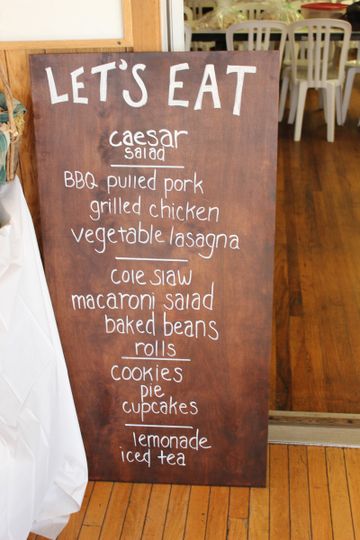 LET'S EAT
caesar
salad
BBQ pulled pork
grilled chicken
vegetable lasagna
cole slaw
macaroni salad
baked beans
rolls
cookies
pie
cupcakes
lemonade
iced tea